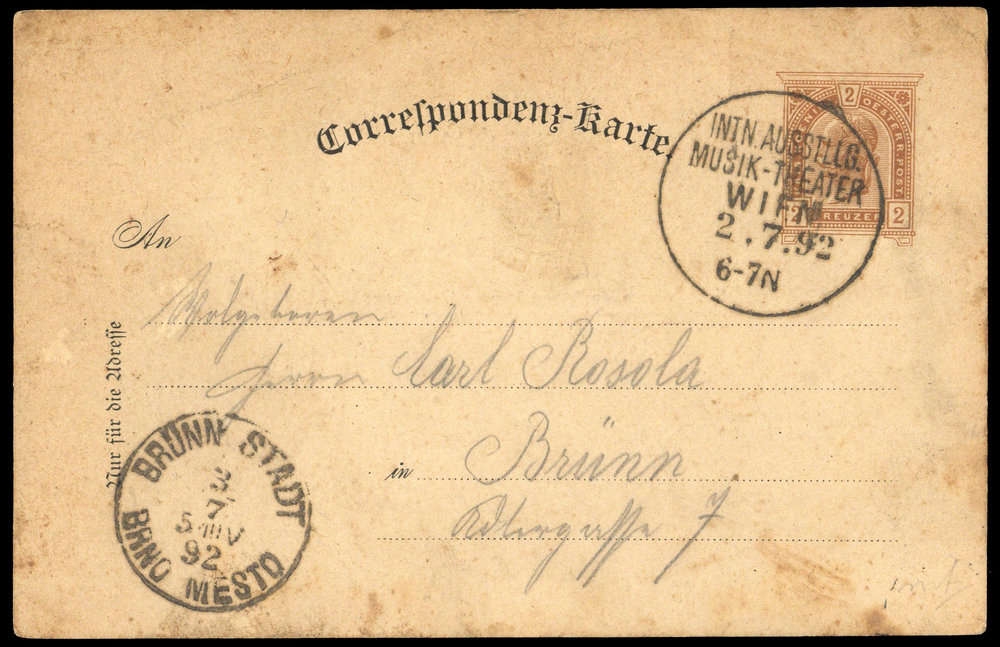 Correspondenz-Karte.
2
OESTERR. POST
2 KREUZER 2
INTN. AUSSTLLG.
MUSIK-THEATER
WIEN
2.7.92
6-7N
An
Wolgeboren
Herrn Carl Rosola
in Brünn
Adlergasse 7
Nur für die Adresse
BRÜNN STADT
3
7
92
BRNO MĚSTO